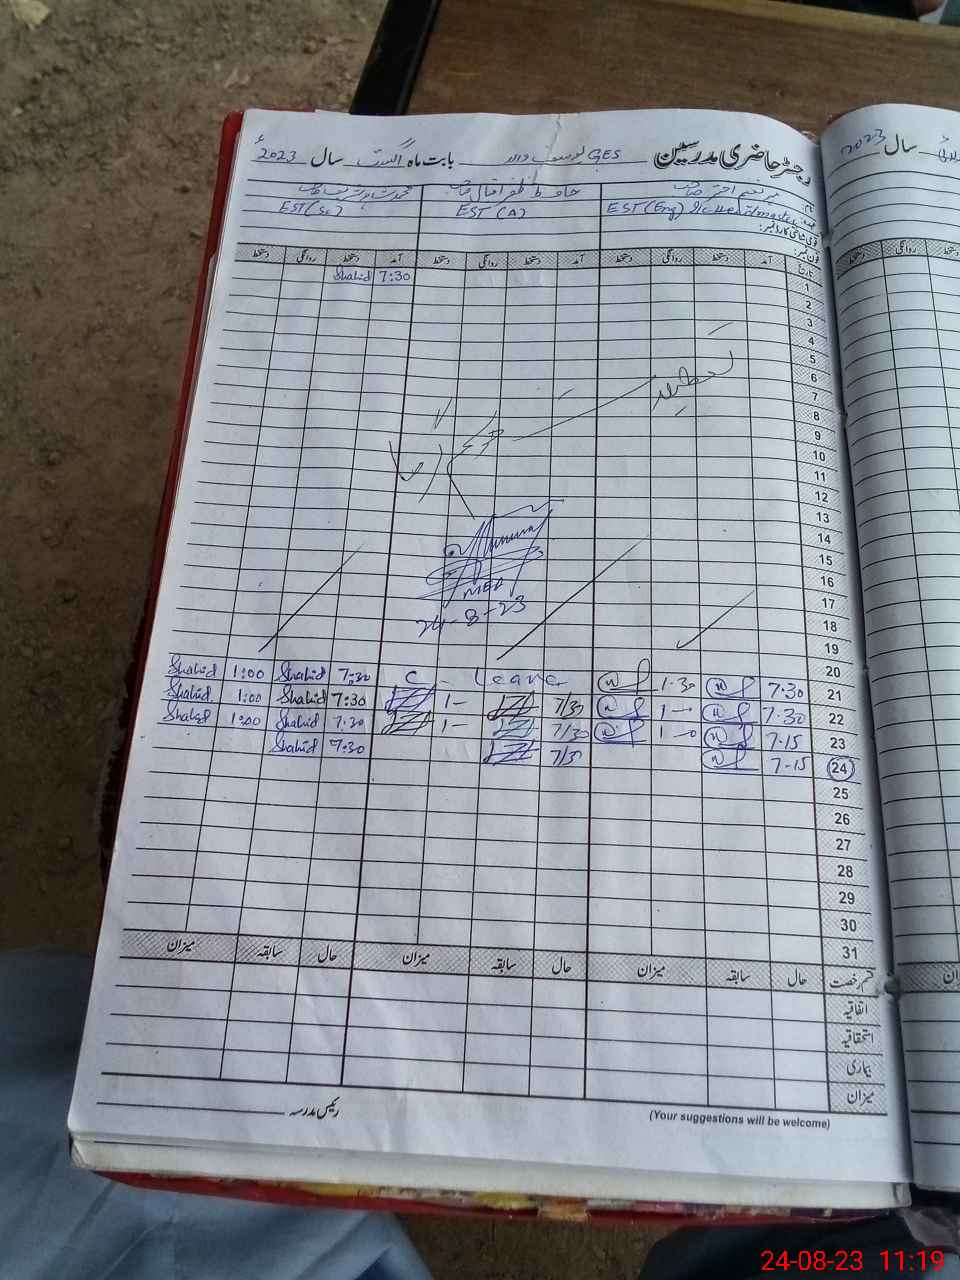 رجسٹر حاضری مدرسین GES یوسف والہ بابت ماہ اگست سال 2023ء
نام:
EST (Eng) EST (A) EST (Sc)
قومی شناختی کارڈ نمبر:
فون نمبر:
تاریخ آمد دستخط روانگی دستخط آمد دستخط روانگی دستخط آمد دستخط روانگی دستخط
1 7:30 Shahid
2
3
4
5
6
7
8
9
10
11
12
13
14
15
16
17
18
19
24-8-23
20
21 7.30 1.30 Leave C 7:30 Shahid 1:00 Shahid
22 7.30 1- 7/30 1- 7:30 Shahid 1:00 Shahid
23 7.15 1- 7/30 1- 7.30 Shahid 1:00 Shahid
24 7-15 7/30 7:30 Shahid
25
26
27
28
29
30
31
قسم رخصت حال سابقہ میزان حال سابقہ میزان حال سابقہ میزان
اتفاقیہ
استحقاقیہ
بیماری
میزان
رئیس مدرسہ
(Your suggestions will be welcome)
سال 2023
24-08-23 11:19